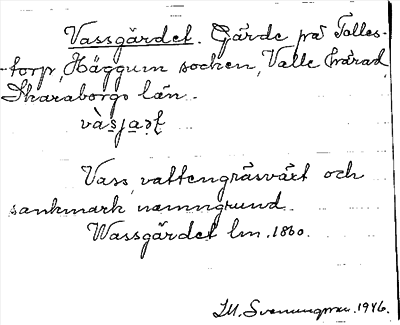 Vassgärdet. Gärde på Tolles-
-torp, Häggum socken, Valle härad,
Skaraborgs län.
Vass, vattengräsväxt och
sankmark namngrund.
Wassgärdet lm. 1860.
M. Svenungsson. 1946.